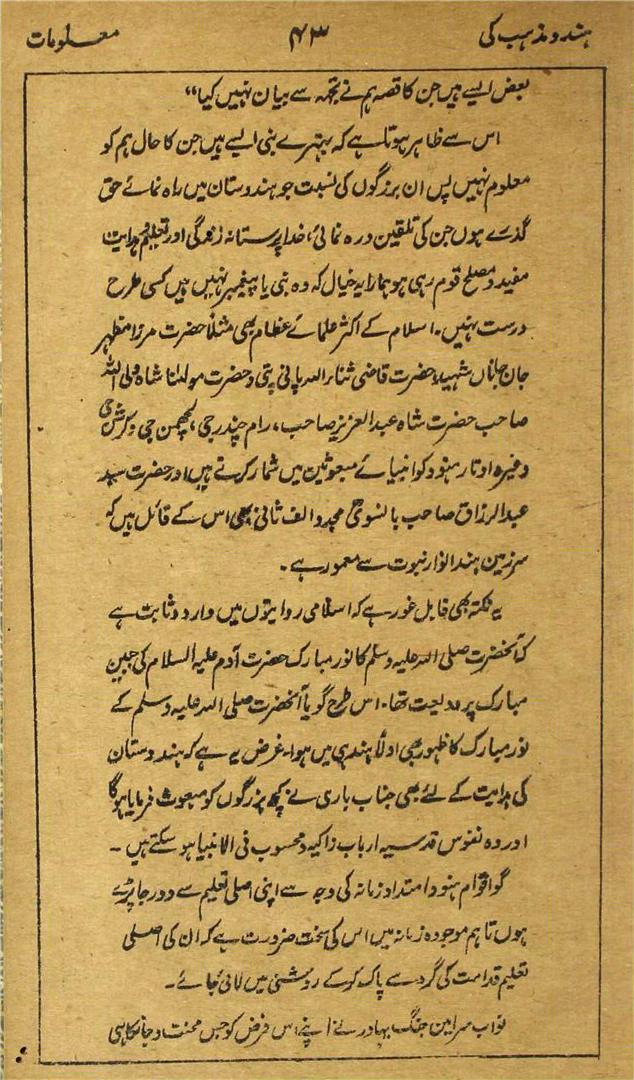 ہندو مذہب کی ۴۳ معلومات
بعض ایسے ہیں جن کا قصہ ہم نے تجھ سے بیان نہیں کیا“
اس سے ظاہر ہوتا ہے کہ بہتیرے نبی ایسے ہیں جن کا حال ہم کو
معلوم نہیں پس ان بزرگوں کی نسبت جو ہندوستان میں راہ نمائے حق
گذرے ہوں جن کی تلقین و رہ نمائی، خدا پرستانہ زندگی اور تعلیم و ہدایت
مفید و مصلح قوم رہی ہو ہمارا یہ خیال کہ وہ نبی یا پیغمبر نہیں ہیں کسی طرح
درست نہیں۔ اسلام کے اکثر علمائے عظام بھی مثلاً حضرت مرزا مظہر
جان جاناں شہید حضرت قاضی ثناء اللہ پانی پتی و حضرت مولٰنا شاہ ولی اللہ
صاحب حضرت شاہ عبدالعزیز صاحب، رام چندر جی، لچھمن جی و کرشن جی
وغیرہ اوتار ہنود کو انبیائے مبعوثین میں شمار کرتے ہیں اور حضرت سید
عبدالرزاق صاحب بانسوی مجدد الف ثانی بھی اس کے قائل ہیں کہ
سرزمین ہند انوار نبوت سے معمور ہے۔
یہ نکتہ بھی قابل غور ہے کہ اسلامی روایتوں میں وارد و ثابت ہے
کہ آنحضرت صلی اللہ علیہ وسلم کا نور مبارک حضرت آدم علیہ السلام کی جبین
مبارک پر ودیعت تھا۔ اس طرح گویا آنحضرت صلی اللہ علیہ وسلم کے
نور مبارک کا ظہور بھی اولاً ہند ہی میں ہوا۔ غرض یہ ہے کہ ہندوستان
کی ہدایت کے لئے بھی جناب باری نے کچھ بزرگوں کو مبعوث فرمایا ہوگا
اور وہ نفوس قدسیہ ارباب زاکیہ محسوب فی الانبیا ہو سکتے ہیں۔
گو اقوام ہنود امتداد زمانہ کی وجہ سے اپنی اصلی تعلیم سے دور جا پڑے
ہوں تاہم موجودہ زمانہ میں اس کی سخت ضرورت ہے کہ ان کی اصلی
تعلیم قدامت کی گرد سے پاک کرکے روشنی میں لائی جائے۔
نواب سر امین جنگ بہادر نے اپنے اس فرض کو جس محنت و جانکاہی